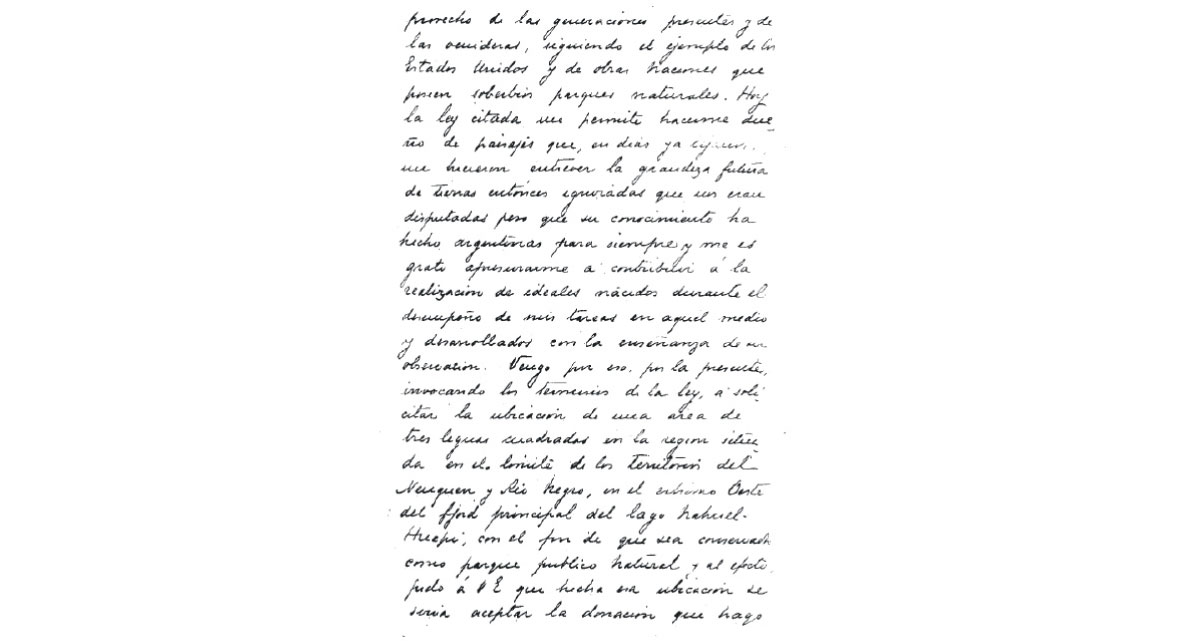 provecho de las generaciones presentes y de
las venideras, siguiendo el ejemplo de los
Estados Unidos y de otras naciones que
poseen soberbios parques naturales. Hoy
la ley citada me permite hacerme due
ño de paisajes que, en dias ya lejanos
me hicieron entrever la grandeza futura
de tierras entónces ignoradas que nos eran
disputadas pero que su conocimiento ha
hecho argentinas para siempre y me es
grato apresurarme á contribuir á la
realizacion de ideales nacidos durante el
desempeño de mis tareas en aquel medio
y desarrollados con la enseñanza de su
observacion. Vengo por eso, por la presente,
invocando los terminos de la ley, á soli
citar la ubicacion de una area de
tres leguas cuadradas en la region situa
da en el limite de los territorios del
Neuquen y Rio Negro, en el extremo Oeste
del fjord principal del lago Nahuel-
Huapi, con el fin de que sea conservada
como parque publico natural y al efecto
pido á V E que hecha esa ubicacion se
sirva aceptar la donacion que hago